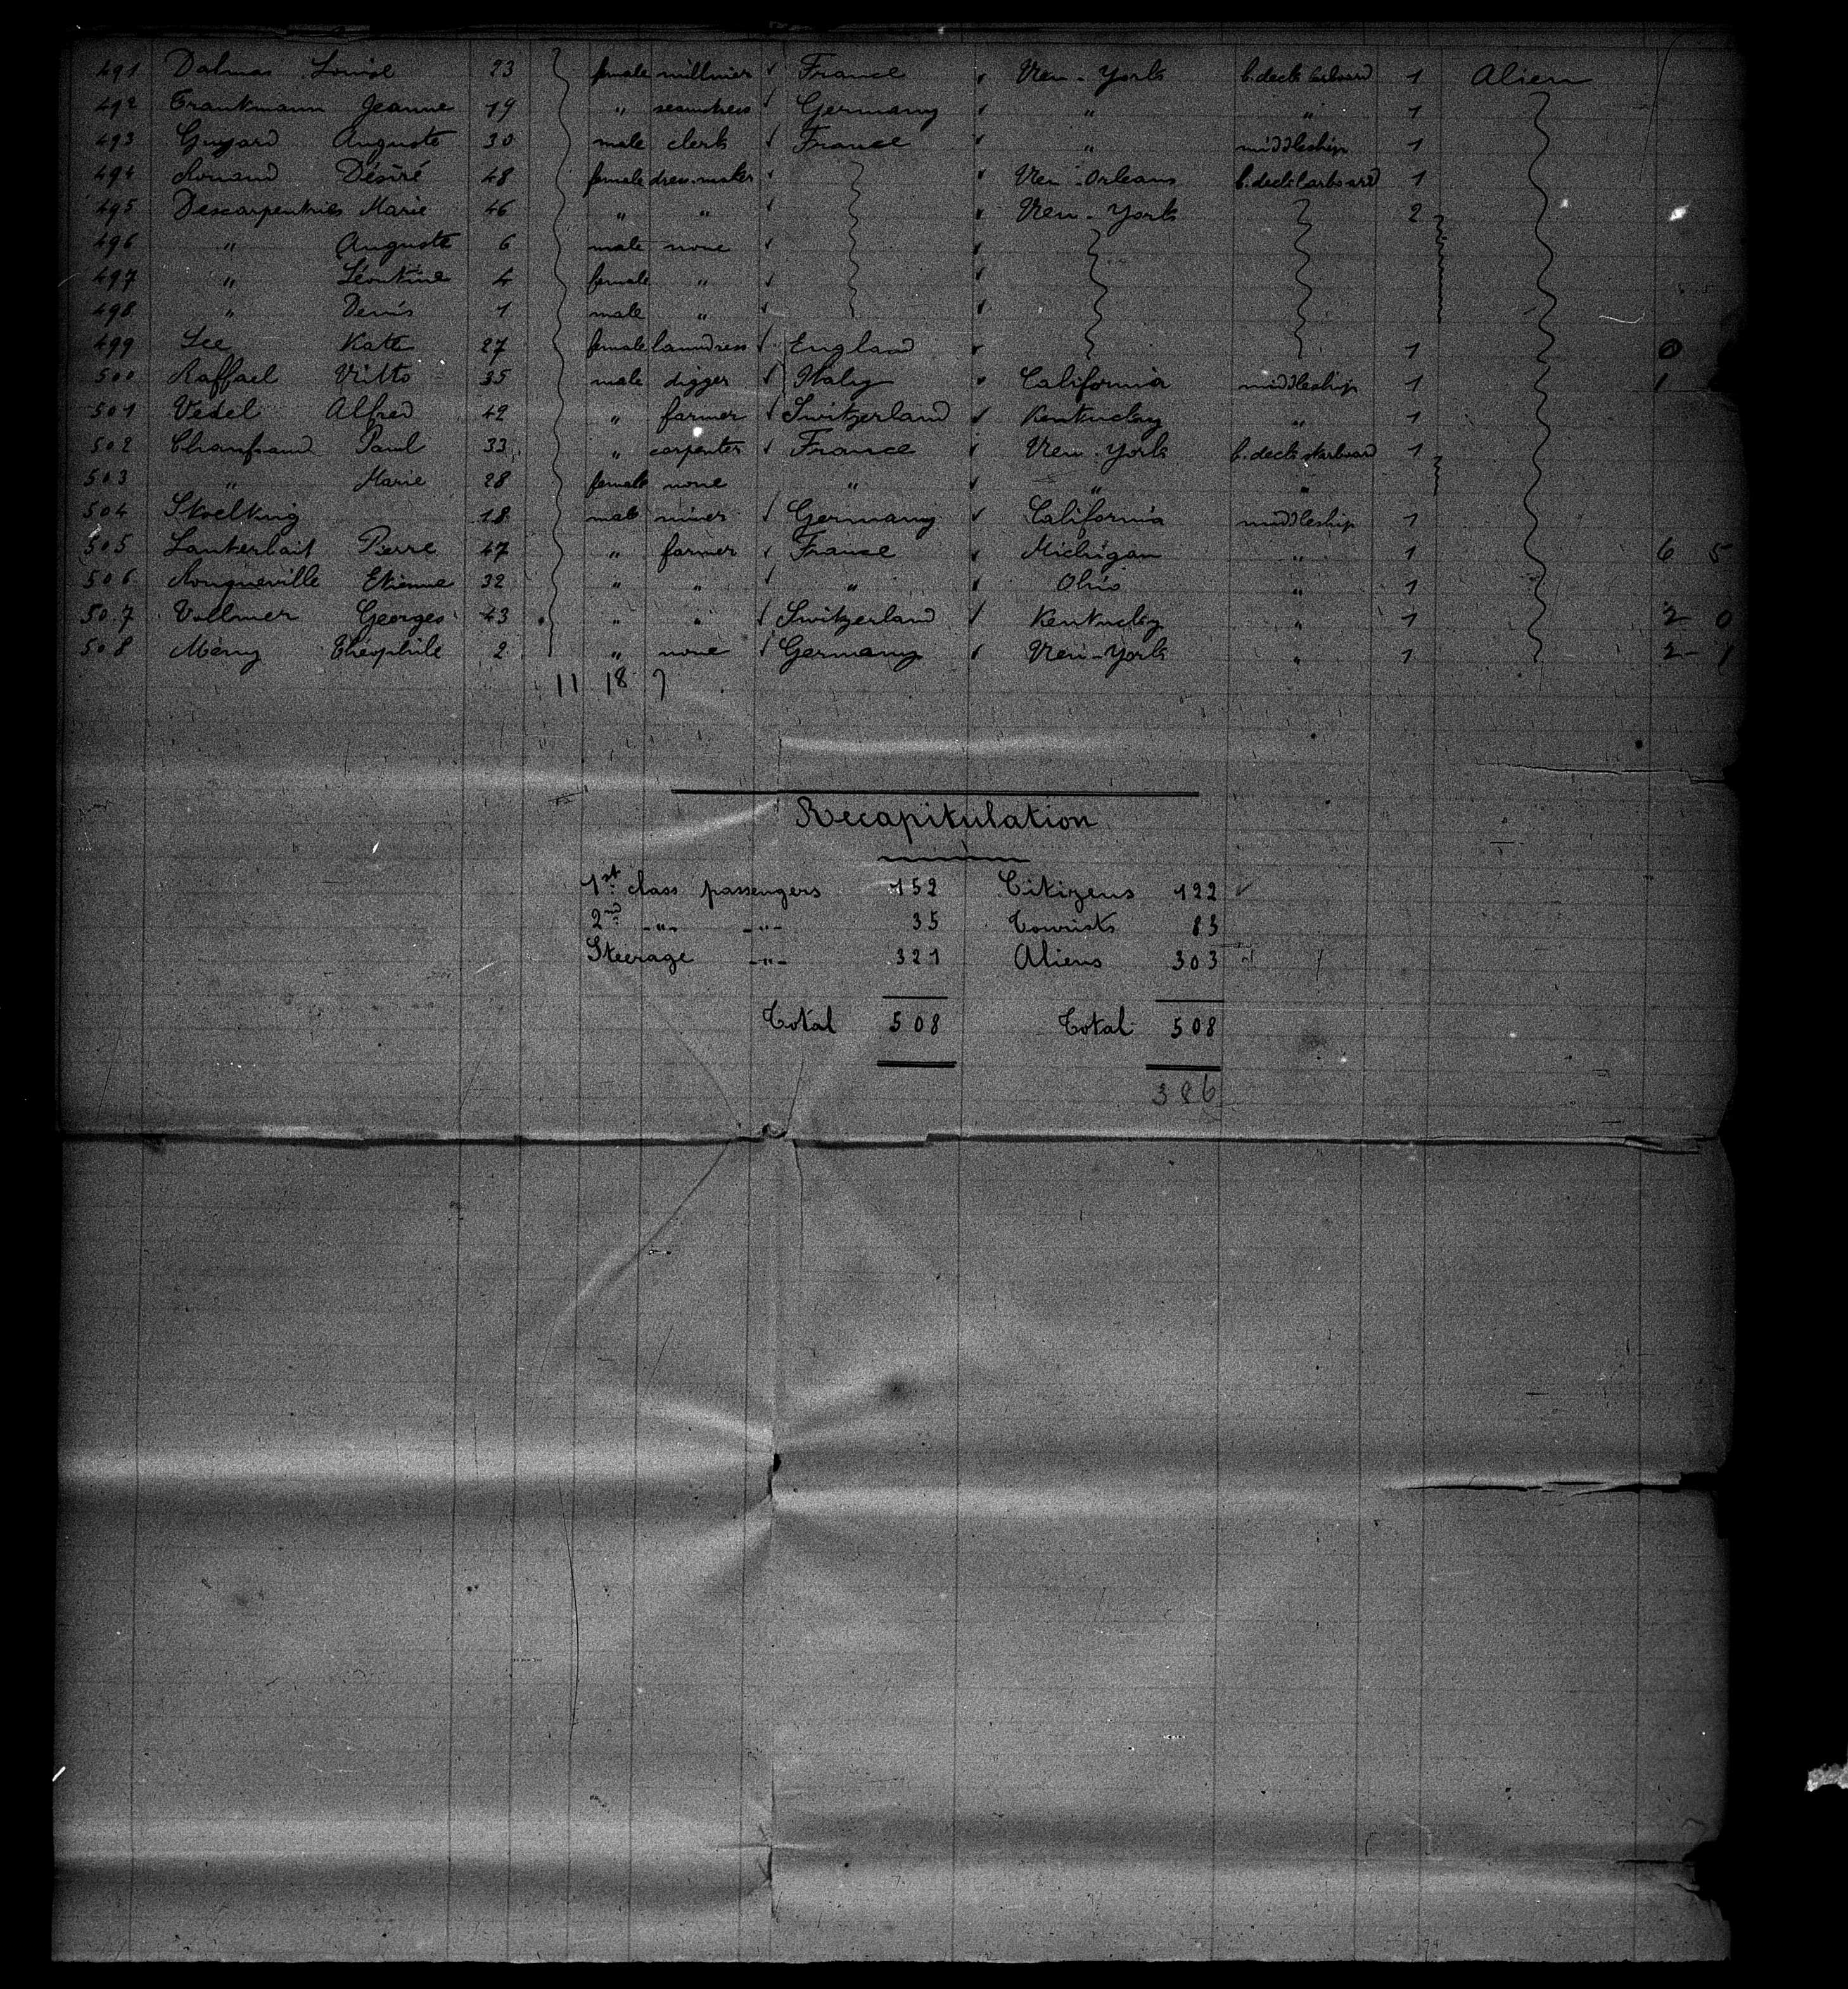 491 Dalmas Louise 23 female milliner ✓ France ✓ New-York b. deck larboard 1 Alien
492 Trautmann Jeanne 19 " seamstress ✓ Germany ✓ " " 1
493 Guyard Auguste 30 male clerk ✓ France ✓ " middleship 1
494 Rouaud Désiré 48 female dress-maker ✓ ✓ New-Orleans b. deck larboard 1
495 Descarpentries Marie 46 " " ✓ ✓ New-York 2
496 " Auguste 6 male none ✓ ✓
497 " Léontine 4 female " ✓ ✓
498 " Denis 1 male " ✓ ✓
499 Lee Kate 27 female laundress ✓ England ✓ 1 0
500 Raffael Vitto 35 male digger ✓ Italy ✓ California middleship 1 1
501 Vedel Alfred 42 " farmer ✓ Switzerland ✓ Kentucky " 1
502 Chanfraud Paul 33 " carpenter ✓ France ✓ New-York b. deck starboard 1
503 " Marie 28 female none " ✓ " "
504 Skoelking 18 male miner ✓ Germany ✓ California middleship 1
505 Lauterbait Pierre 47 " farmer ✓ France ✓ Michigan " 1 6 5
506 Rouqueville Etienne 32 " " ✓ " ✓ Ohio " 1
507 Vollmer Georges 43 " " ✓ Switzerland ✓ Kentucky " 1 2 0
508 Mény Théophile 2 " none ✓ Germany ✓ New-York " 1 2 - 1
11 18 7
Recapitulation
1st class passengers 152 Citizens 122 ✓
2nd -"- -"- 35 Tourists 83
Steerage -"- 321 Aliens 303
Total 508 Total 508
386